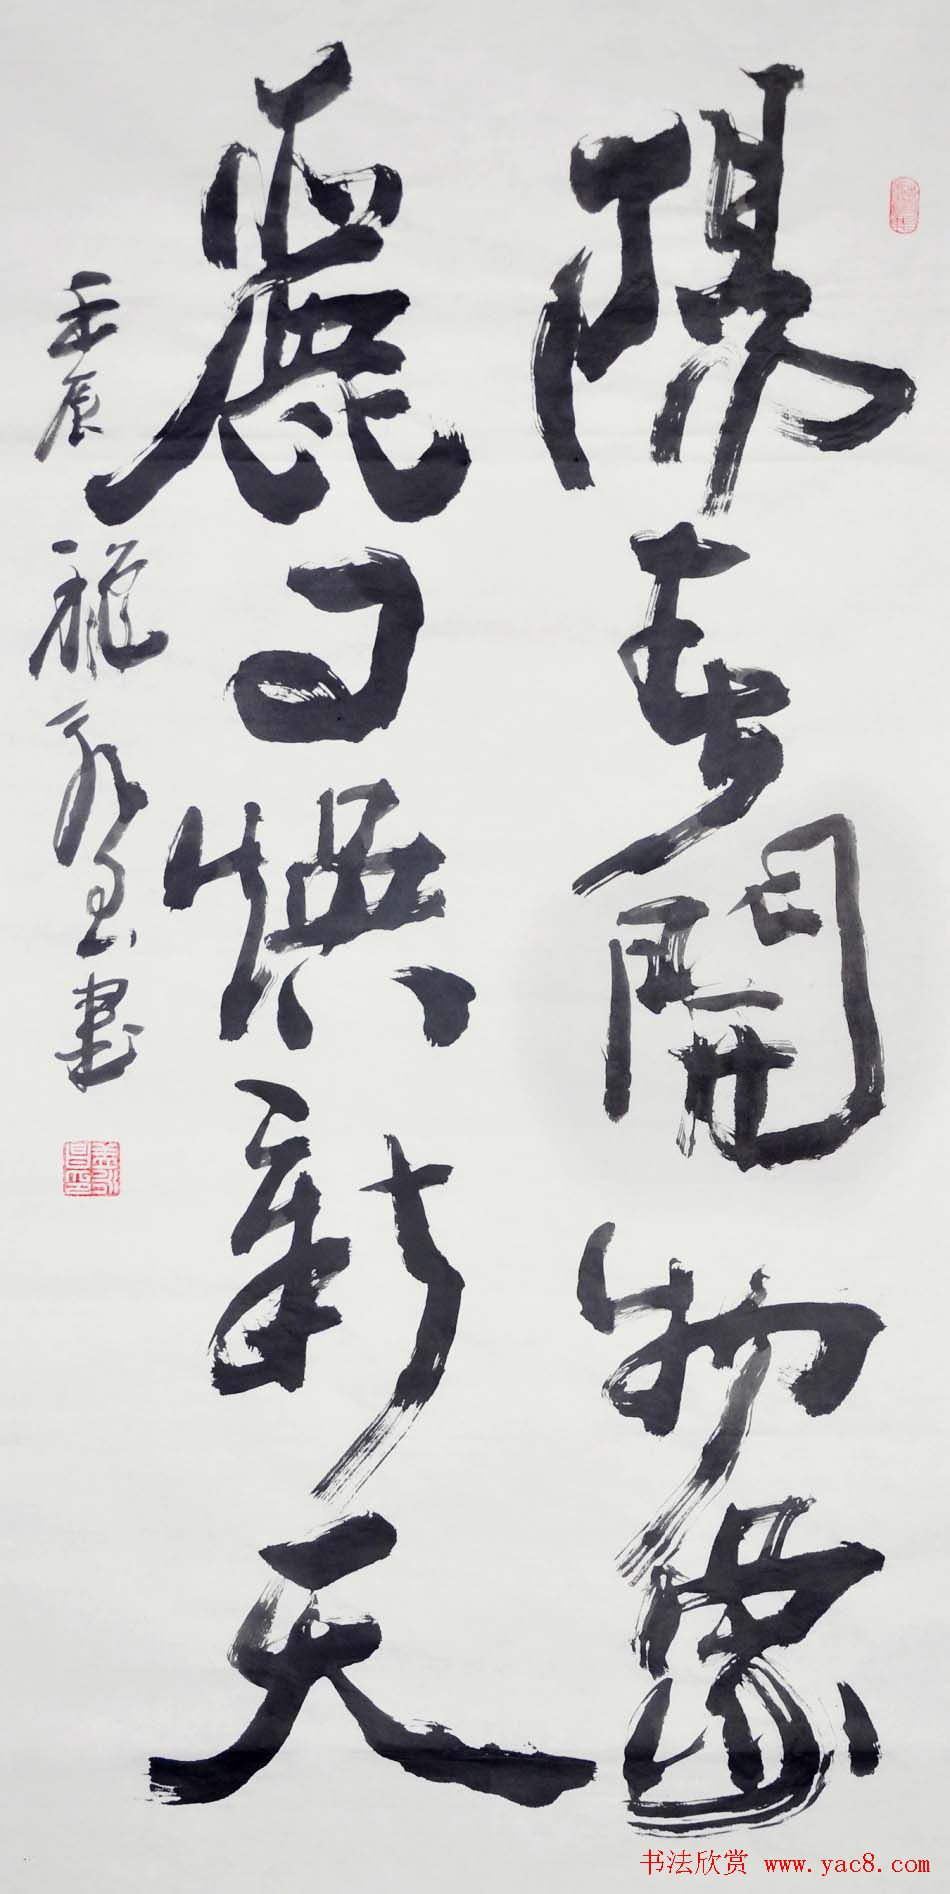 陽春開物象
麗日煥新天
壬辰 龍 書
书法欣赏 www.yac8.com